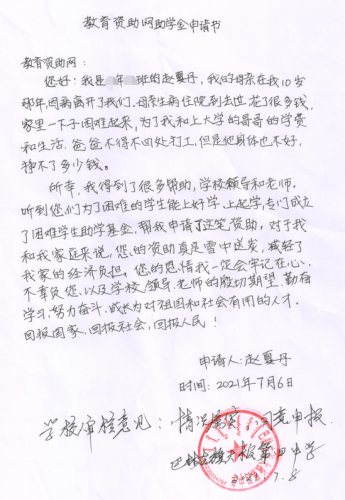 教育资助网助学金申请书
教育资助网：
您好：我是 年 班的赵夏丹，我的母亲在我10岁
那年，因病离开了我们。母亲生病住院到去世，花了很多钱，
家里一下子困难起来，为了我和上大学的哥哥的学费
和生活，爸爸不得不四处打工，但是他身体也不好，
挣不了多少钱。
所幸，我得到了很多帮助，学校领导和老师。
听到您们为了困难的学生能上好学、上起学，专门成立
了困难学生助学基金，帮我申请了这笔资助，对于我
和我家庭来说，您的资助真是雪中送炭，减轻了
我家的经济负担，您的恩情我一定会牢记在心、
不辜负您、以及学校领导、老师的殷切期望，勤奋
学习、努力奋斗，成长为对祖国和社会有用的人才。
回报国家、回报社会，回报人民！
申请人：赵夏丹
时间：2021年7月6日
学校审核意见：情况属实，同意申报.
巴林左旗 第四中学
2021.7.8